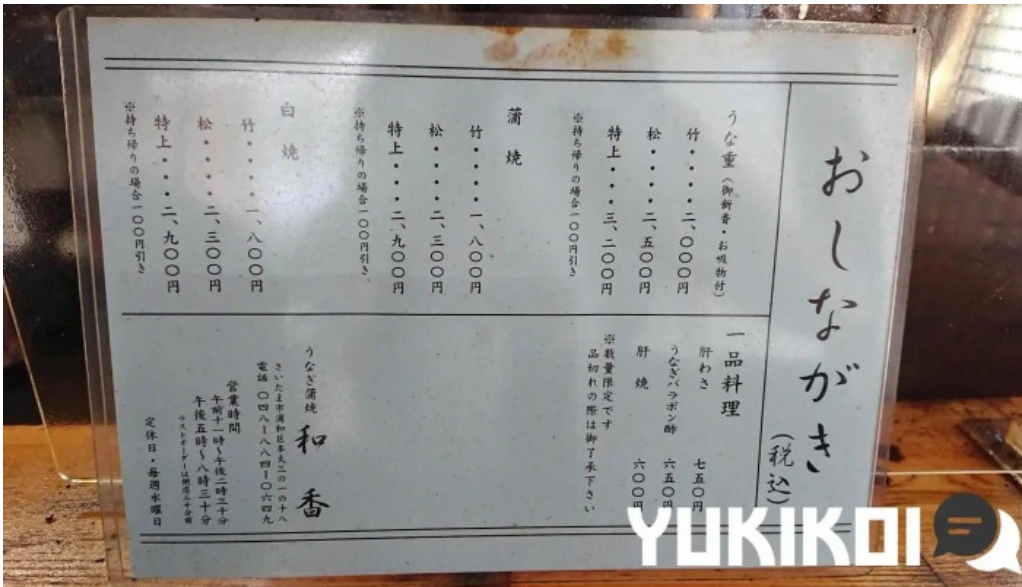 おしながき
(税込)
うな重(御新香・お吸物付)
竹・・・・・二、〇〇〇円
松・・・・・二、五〇〇円
特上・・・・三、二〇〇円
※持ち帰りの場合一〇〇円引き
蒲焼
竹・・・・・一、八〇〇円
松・・・・・二、三〇〇円
特上・・・・二、九〇〇円
※持ち帰りの場合一〇〇円引き
白焼
竹・・・・・一、八〇〇円
松・・・・・二、三〇〇円
特上・・・・二、九〇〇円
※持ち帰りの場合一〇〇円引き
一品料理
肝わさ 七五〇円
うなぎバラポン酢 六五〇円
肝焼 六〇〇円
※数量限定です
品切れの際は御了承下さい
うなぎ蒲焼 和香
さいたま市浦和区本太二の一の十八
電話 〇四八ー八八四ー〇六四九
営業時間
午前十一時〜午後二時三十分
午後五時〜八時三十分
ラストオーダーは閉店三十分前
定休日・毎週水曜日
YUKIKOI